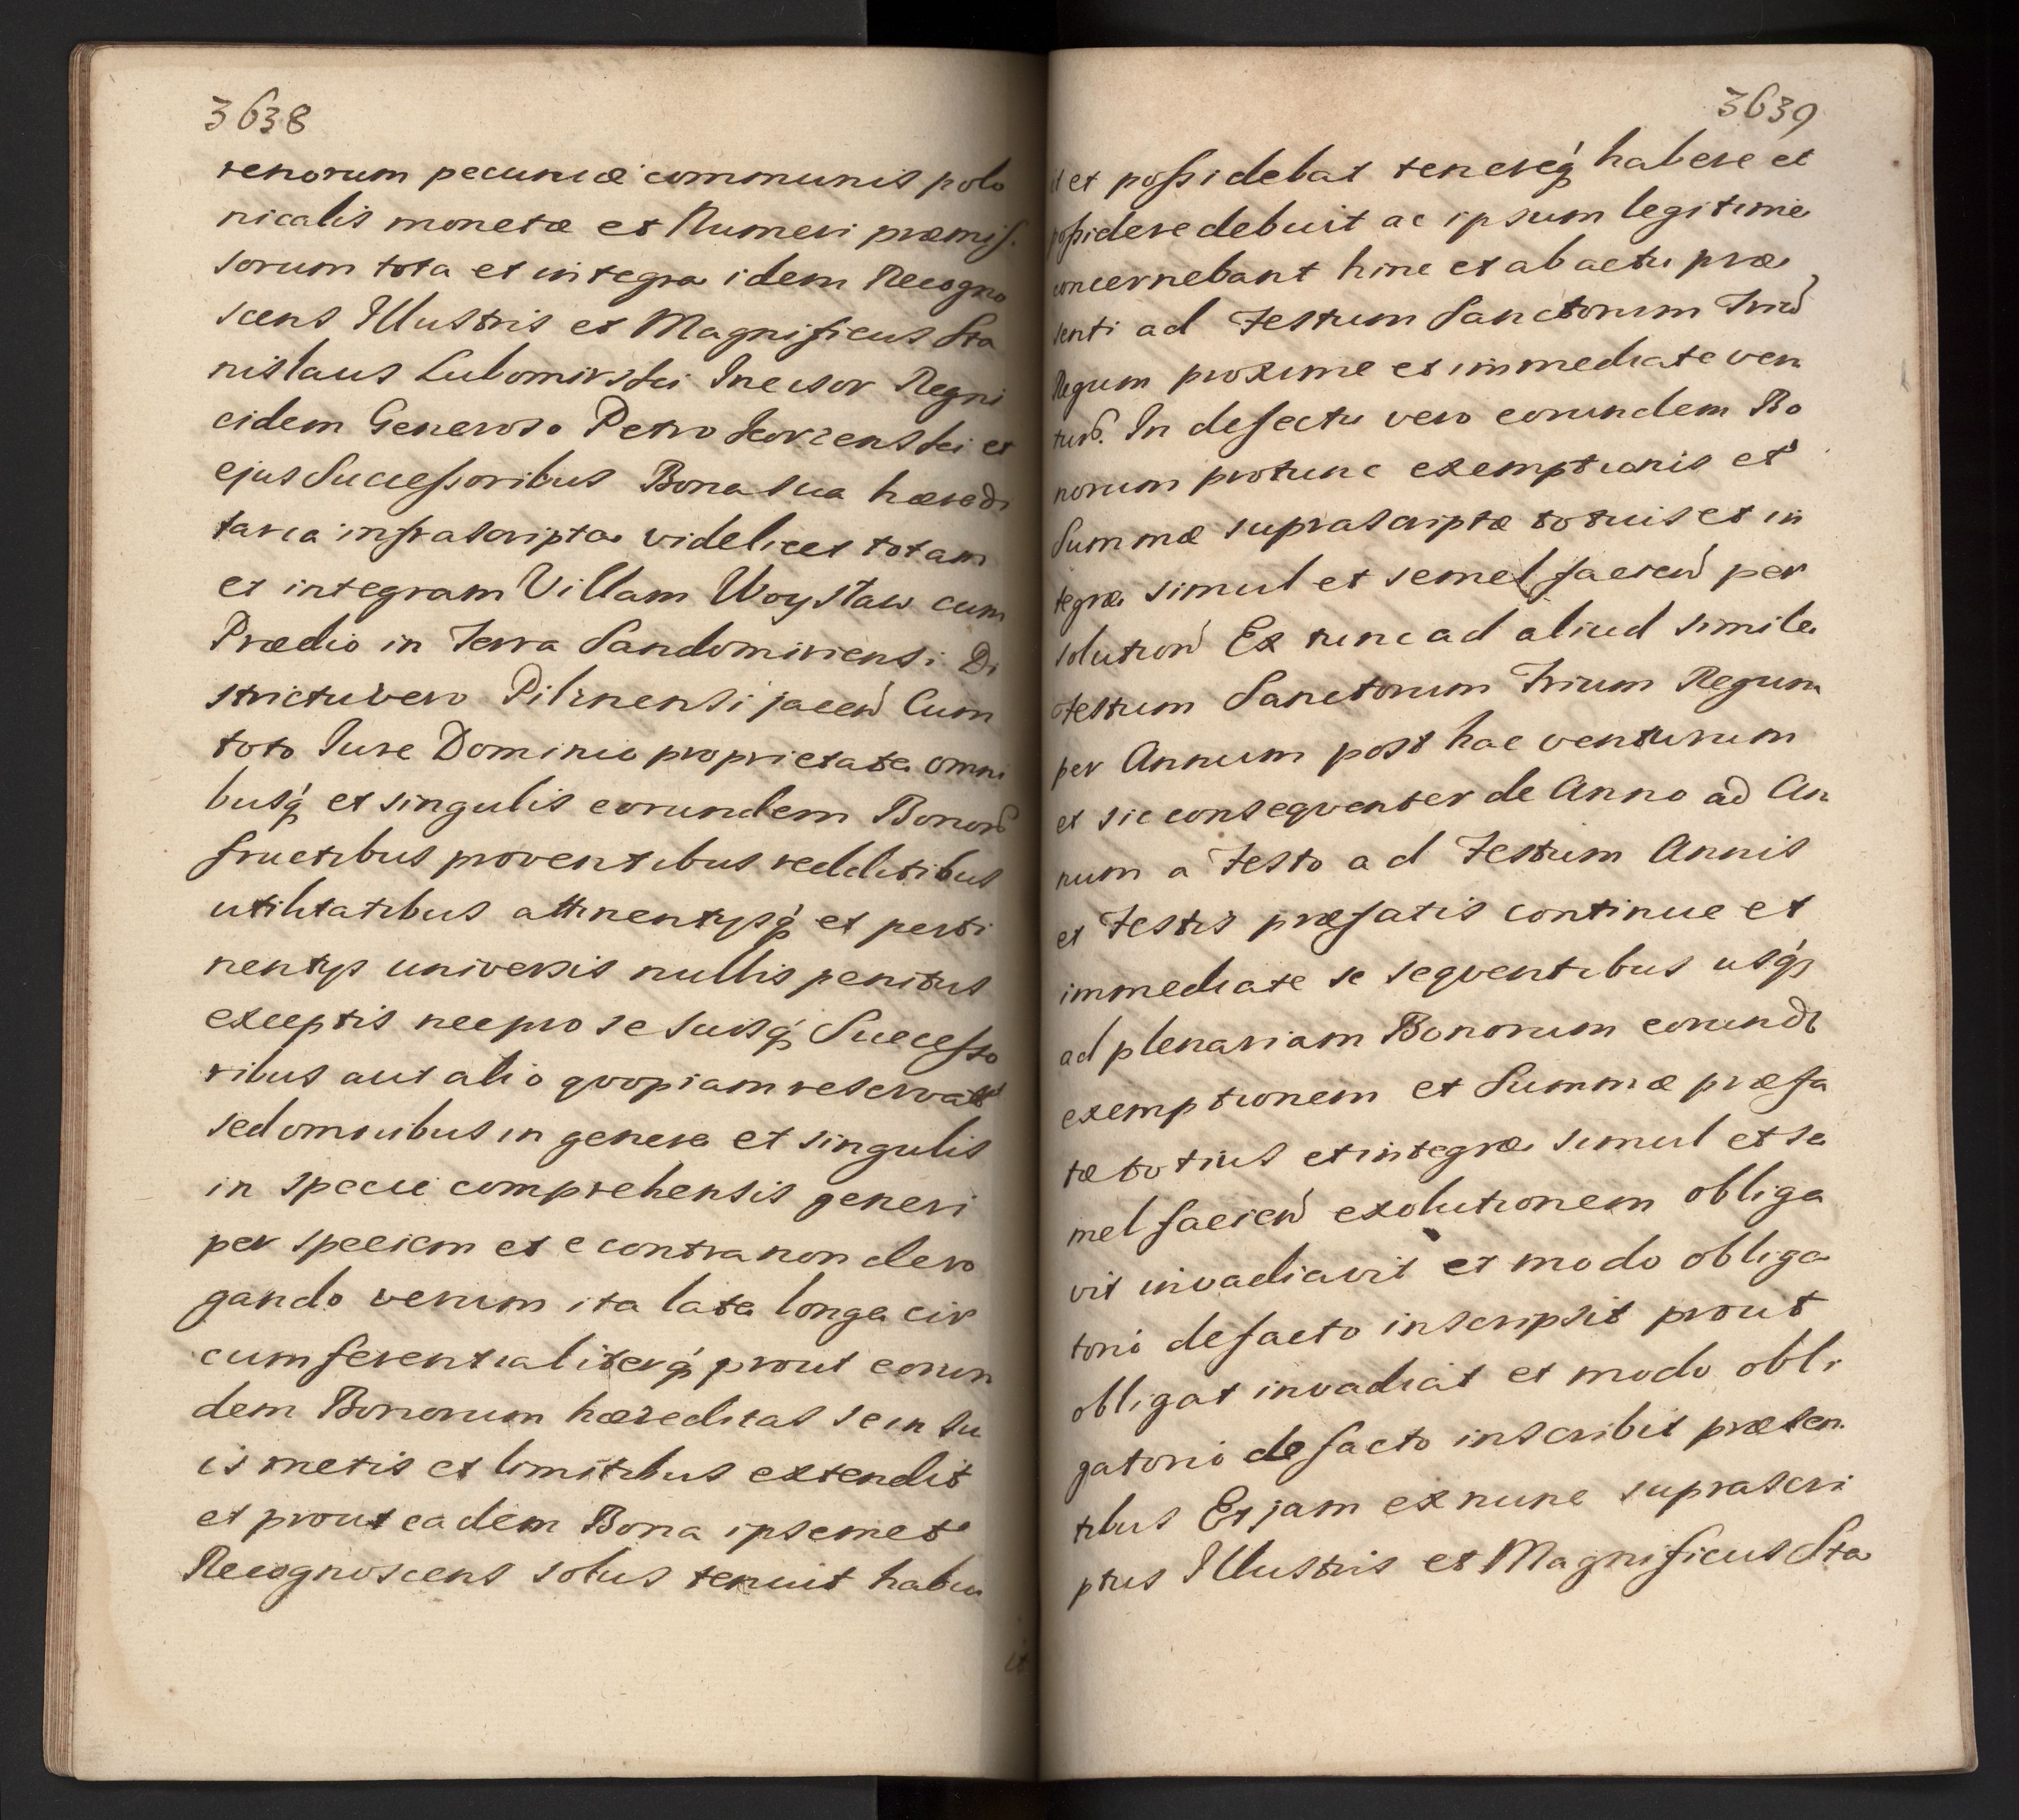 3638
renorum pecuniæ communis polo
nicalis monetæ et Numeri præmis.
sorum tota et integra idem Recogno
scens Illustris et Magnificus Sta
nislaus Lubomirski Incisor Regni
eidem Generoso Petro et
ejus Successoribus Bona sua hæredi
taria infrascripta videlicet totam
et integram Villam Woysław cum
Prædio in Terra Sandomiriensi Di
strictu vero Pilsnensi jacen̄ Cum
toto Iure Dominio proprietate omni
busq́ et singulis eorundem Bonor̄
fructibus proventibus redditibus
utilitatibus attinentijsq́ et perti
nentijs universis nullis penitus
exceptis nec pro se suisq́ Successo
ribus aut alio qvopiam reservatis
sed omnibus in genere et singulis
in specie comprehensis generi
per speciem et e contra non dero
gando verum ita late longe cir
cumferentialiterq́ prout eorun
dem Bonorum hæreditas se in su
is metis et limitibus extendit
et prout eadem Bona ipsemet
Recognoscens solus tenuit habu
it
3639
it et possidebat tenereq́ habere et
possidere debuit ac ipsum legitime
concernebant hinc et ab actu præ
senti ad Festum Sanctorum Triū
Regum proxime et immediate ven
tur̄. In defectu vero eorundem Bo
norum protunc exemptionis et
Summæ suprascriptæ totius et in
tegræ simul et semel facien̄ per
solution̄ Ex tunc ad aliud simile
Festum Sanctorum Trium Regum
per Annum post hac venturum
et sic conseqventer de Anno ad An
num a Festo ad Festum Annis
et Festis præfatis continue et
immediate se seqventibus usq́
ad plenariam Bonorum eorund
exemptionem et Summæ præfa
tæ totius et integræ simul et se
mel facien̄ exolutionem obliga
vit invadiavit et modo obliga
torio de facto inscripsit prout
obligat invadiat et modo obli
gatorio de facto inscribit præsen
tibus Et jam ex nunc suprascri
ptus Illustris et Magnificus Sta